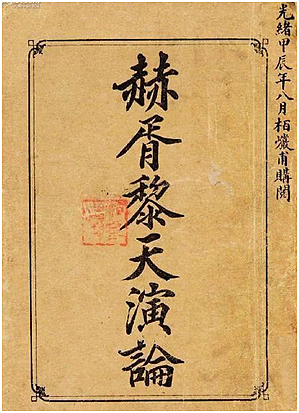 光緒甲辰年八月柏巖甫購閱
赫胥黎天演論